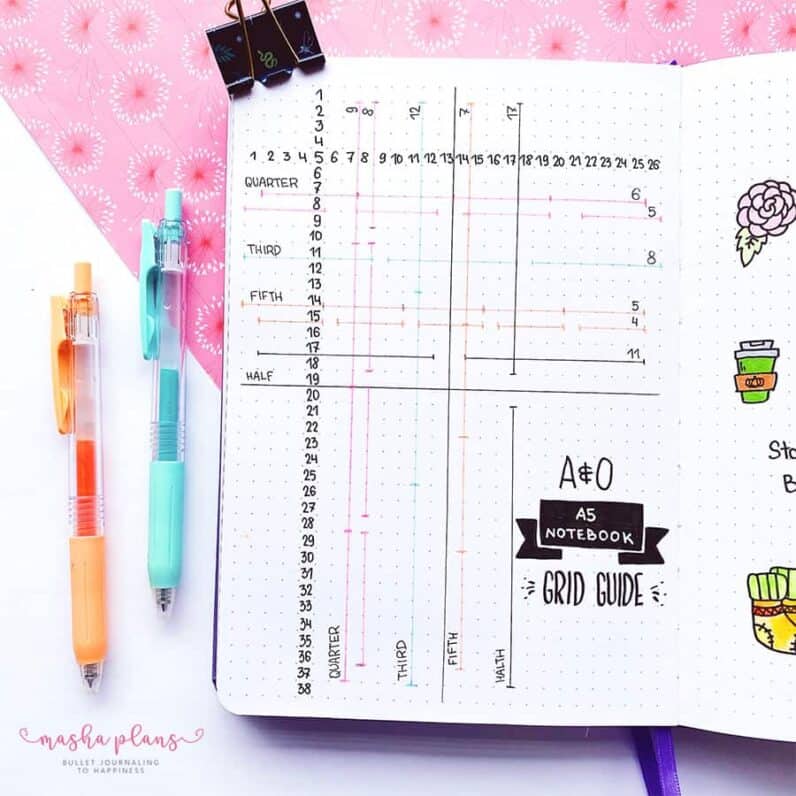 1
2 9 8 12 7 17
3
4
1 2 3 4 5 6 7 8 9 10 11 12 13 14 15 16 17 18 19 20 21 22 23 24 25 26
6
QUARTER
7 6
8 5
9
10
THIRD 11 8
12
13
FIFTH
14 5
15 4
16
17 11
18
HALF 19
20
21
22
23
24
25
26
27
28
29
30
31
32
33
34
35
36
37
38
QUARTER
THIRD
FIFTH
HALTH
A&O
A5
NOTEBOOK
GRID GUIDE
Sto
B
masha plans
BULLET JOURNALING
TO HAPPINESS